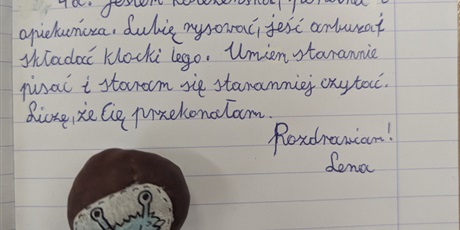 Jestem koleżeńska, pomocna i
opiekuńcza. Lubię rysować, jeść arbuza i
składać klocki lego. Umiem starannie
pisać i staram się staranniej czytać.
Liczę, że Cię przekonałam.
Pozdrawiam!
Lena